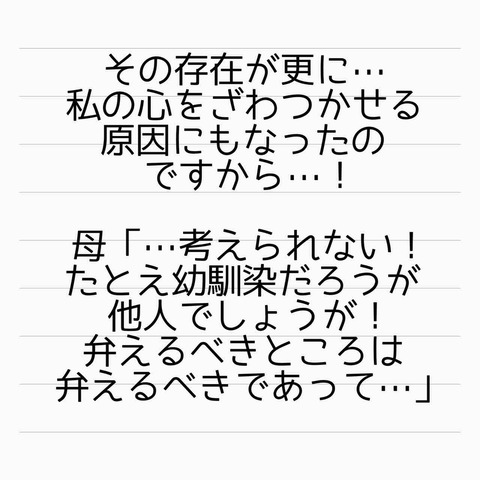 その存在が更に…
私の心をざわつかせる
原因にもなったの
ですから…！
母「…考えられない！
たとえ幼馴染だろうが
他人でしょうが！
弁えるべきところは
弁えるべきであって…」